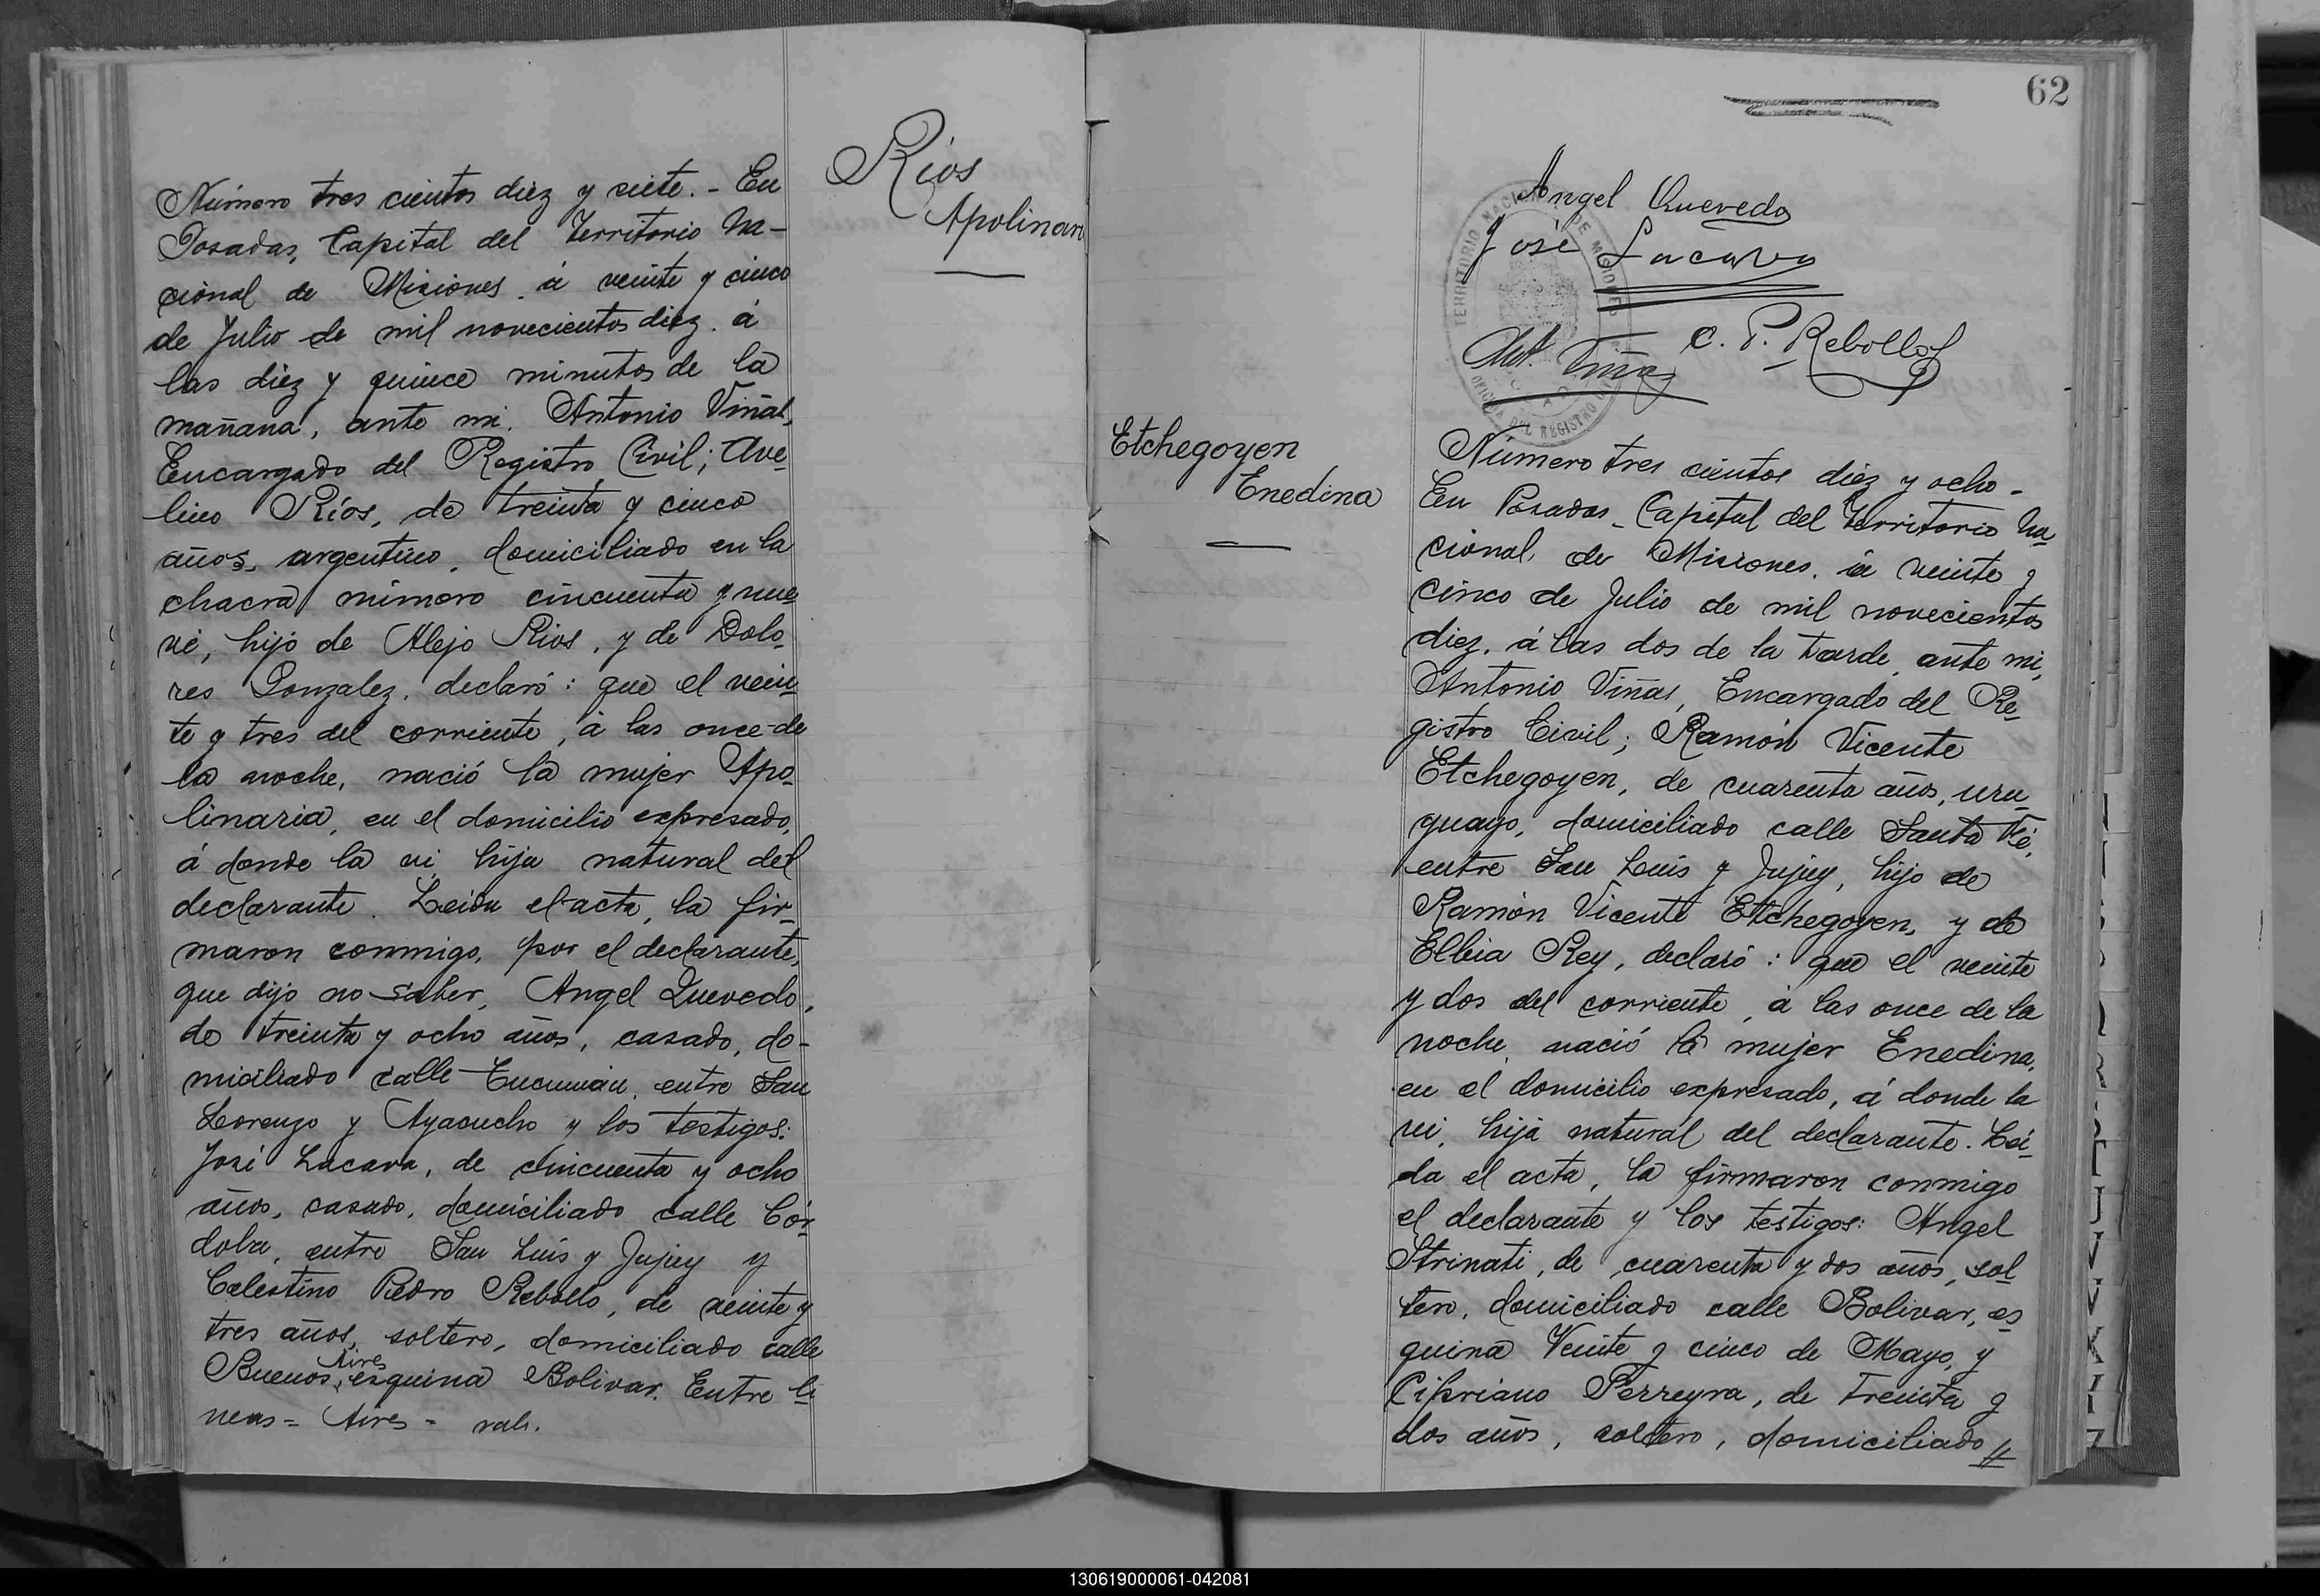 Número tres cientos diez y siete. - En
Posadas, Capital del Territorio Na-
cional de Misiones. á veinte y cinco
de Julio de mil novecientos diez. á
las diez y quince minutos de la
mañana, ante mi. Antonio Viñas,
Encargado del Registro Civil; Ave-
lino Ríos, de treinta y cinco
años, argentino, domiciliado en la
chacra número cincuenta y nue-
ve, hijo de Alejo Rios, y de Dolo-
res Gonzalez, declaró: que el vein-
te y tres del corriente, á las once de
la noche, nació la mujer Apo-
linaria, en el domicilio expresado,
á donde la vi, hija natural del
declarante. Leida el acta, la fir-
maron conmigo, por el declarante,
que dijo no saber, Angel Quevedo,
de treinta y ocho años, casado, do-
miciliado calle Tucumán, entre San
Lorenzo y Ayacucho y los testigos:
José Lacava, de cincuenta y ocho
años, casado, domiciliado calle Cór-
doba, entre San Luis y Jujuy y
Celestino Pedro Rebollo, de veinte y
tres años, soltero, domiciliado calle
Buenos Aires esquina Bolivar. Entre li-
neas = Aires = vale.
Ríos
Apolinaria
62
Angel Quevedo
José Lacava
C. P. Rebollo
Ant. Viñas
TERRITORIO NACIONAL DE MISIONES
OFICINA DEL REGISTRO
Etchegoyen
Enedina
Número tres cientos diez y ocho -
En Posadas - Capital del Territorio Na-
cional, de Misiones. á veinte y
cinco de Julio de mil novecientos
diez. á las dos de la tarde, ante mi,
Antonio Viñas, Encargado del Re-
gistro Civil; Ramón Vicente
Etchegoyen, de cuarenta años, uru-
guayo, domiciliado calle Santa Fé,
entre San Luis y Jujuy, hijo de
Ramón Vicente Etchegoyen, y de
Elbia Rey, declaró: que el veinte
y dos del corriente, á las once de la
noche, nació la mujer Enedina,
en el domicilio expresado, á donde la
vi, hija natural del declarante. Leí-
da el acta, la firmaron conmigo
el declarante y los testigos: Angel
Strinati, de cuarenta y dos años, sol-
tero, domiciliado calle Bolivar, es-
quina Veinte y cinco de Mayo, y
Cipriano Perreyra, de treinta y
dos años, soltero, domiciliado //
130619000061-042081